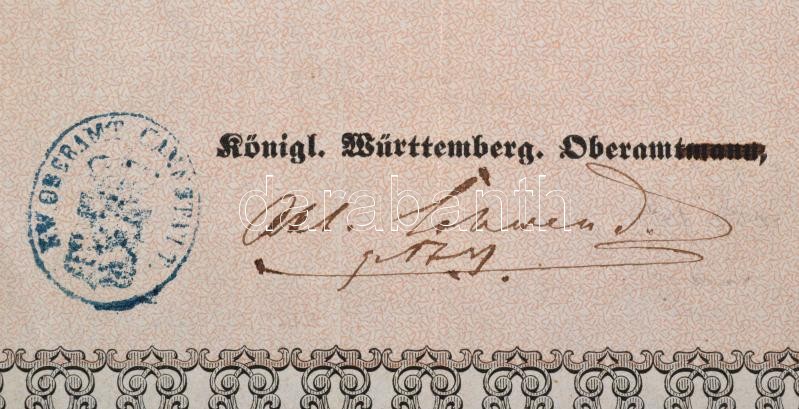 Königl. Württemberg. Oberamtmann,
K.W. OBERAMT CANNSTATT.
Schwend.
darabanth